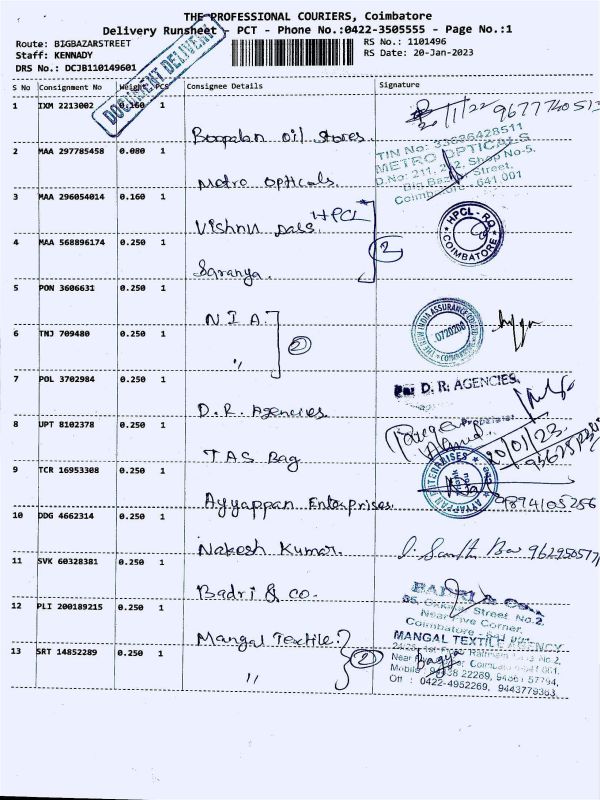 THE PROFESSIONAL COURIERS, Coimbatore
Delivery Runsheet - PCT - Phone No.:0422-3505555 - Page No.:1
Route: BIGBAZARSTREET
Staff: KENNADY
DRS No.: DCJB110149601
RS No.: 1101496
RS Date: 20-Jan-2023
DOCUMENT DELIVERY
S No Consignment No Weight PCS Consignee Details Signature
1 IXM 2213002 0.160 1 Boopalan Oil Stores 9677740513
2 MAA 297785458 0.080 1 Metro Opticals.
TIN No: 33626428511
METRO OPTICALS
D.No: 211, 212, Shop No-5,
Big Bazaar Street,
Coimbatore - 641 001
3 MAA 296054014 0.160 1 Vishnu HPCL
HPCL - RO COIMBATORE
4 MAA 568896174 0.250 1 Saranya. 2
5 PON 3606631 0.250 1 N I A.
THE NEW INDIA ASSURANCE
COIMBATORE
6 TNJ 709480 0.250 1 " 2
7 POL 3702984 0.250 1 D.R. Agencies
For D. R. AGENCIES,
Proprietor
8 UPT 8102378 0.250 1 TAS Bag
20/01/23
9 TCR 16953308 0.250 1 Ayyappan Enterprises.
AYYAPPAN ENTERPRISES
9894105256
10 DDG 4662314 0.250 1 Nakesh Kumar.
11 SVK 60328381 0.250 1 Badri & co.
BADRI & Co.,
Street, No.2,
Near Five Corner,
Coimbatore
12 PLI 200189215 0.250 1 Mangal Textile
MANGAL TEXTILE AGENCY
13 SRT 14852289 0.250 1 " 2
Off : 0422-4952269, 9443779363